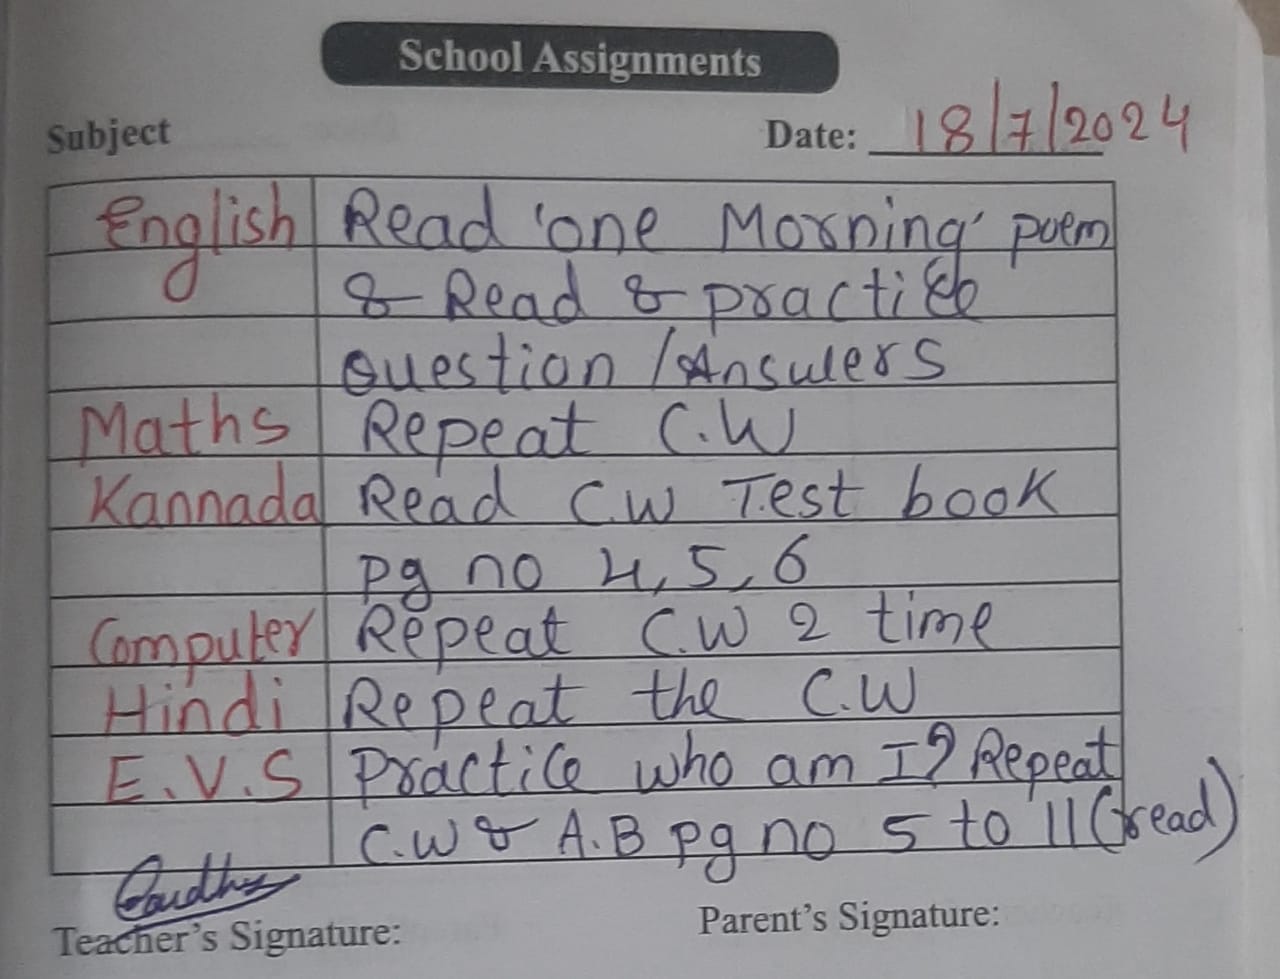 School Assignments
Subject Date: 18/7/2024
English Read 'one Morning' poem
& Read & practice
Question / Answers
Maths Repeat C.W
Kannada Read C.W Test book
pg no 4, 5, 6
Computer Repeat C.W 2 time
Hindi Repeat the C.W
E.V.S Practice who am I? Repeat
C.W & A.B pg no 5 to 11 (read)
Teacher's Signature: Parent's Signature: